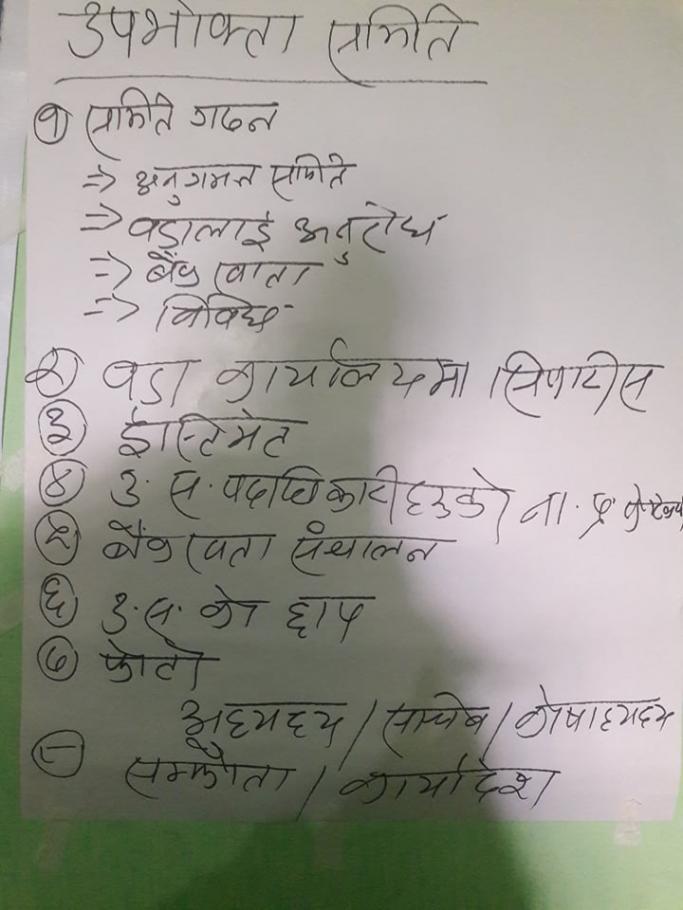 उपभोक्ता समिति
१) समिति गठन
=> अनुगमन समिति
=> वडालाई अनुरोध
=> बैंक खाता
=> विविध
२) वडा कार्यालयमा सिफारीस
३) ईस्टिमेट
४) उ. स. पदाधिकारीहरुको ना. प्र.
५) बैंक खाता संचालन
६) उ. स. को छाप
७) फोटो
अध्यक्ष / सचिव / कोषाध्यक्ष
८) सम्झौता / कार्यादेश